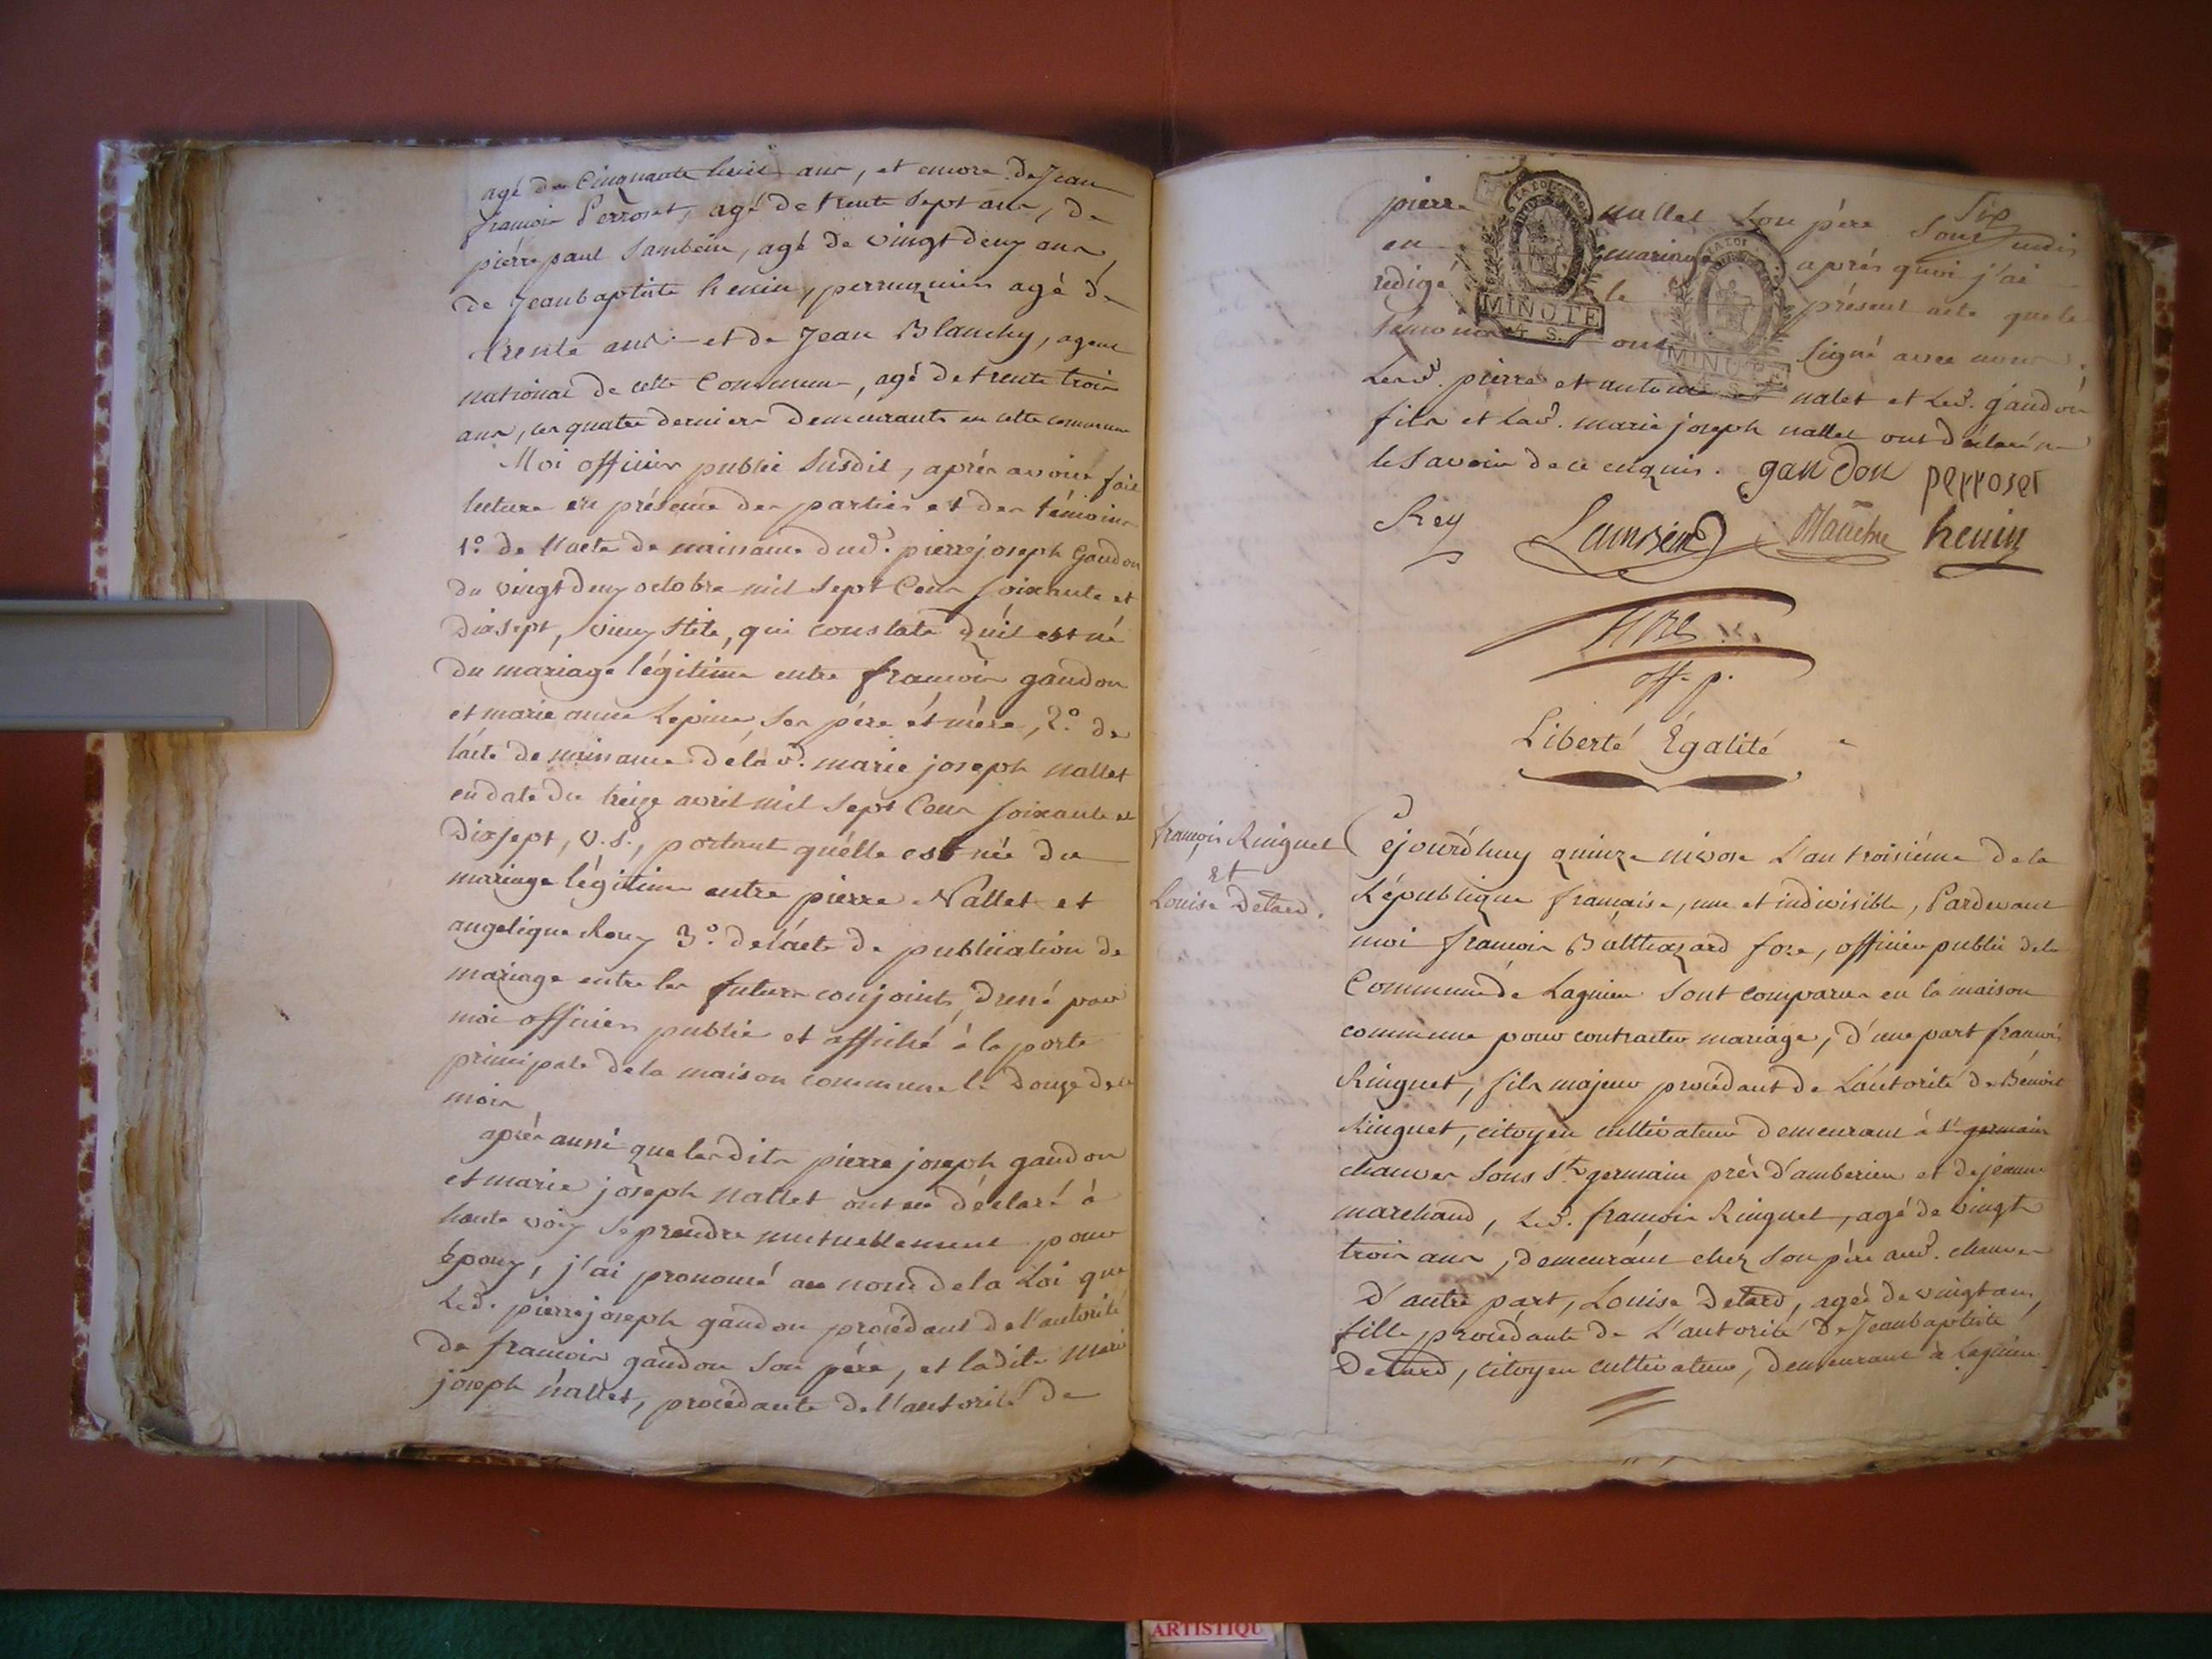 agé de Cinquante huit ans, et encore de Jean
françois Perroset, agé de trente sept ans, de
pierre paul Sambein, agé de vingt deux ans,
de Jeanbaptiste henin, perruquier agé de
trente ans - et de Jean Blanchy, agent
national de cette Commune, agé de trente trois
ans, les quatre derniers demeurants en cette commune
Moi officier public susdit, aprés avoir fait
lecture en présence des parties et des témoins
1.º de l'acte de naissance dud. pierre joseph Gandon
du vingt deux octobre mil sept Cens soixante et
dixsept, vieux stile, qui constate qu'il est né
du mariage légitime entre françois gandon
et marie anne Lepine, ses pére et mére, 2.º de
l'acte de naissance de lad. marie joseph nallet
en date du treize avril mil sept Cens soixante et
dixsept, v.s., portant qu'elle est née du
mariage légitime entre pierre Nallet et
angelique Roux 3.º de l'acte de publication de
mariage entre les futurs conjoints, dressé par
moi officier public et affiché à la porte
principale de la maison commune le douze de ce
mois
aprés aussi que lesdits pierre joseph gandon
et marie joseph nallet ont eu déclaré à
haute voix se prendre mutuellement pour
époux, j'ai prononcé au nom de la Loi que
Led. pierre joseph gandon procédant de l'autorité
de françois gandon son pére, et ladite Marie
joseph nallet, procédante de l'autorité de
pierre nallet son pére sont unis
en mariage aprés quoi j'ai
redigé le présent acte que les
témoins ont signé avec nous.
LA LOI
MINUTE
4 S.
LA LOI
MINUTE
Lesd. pierre et antoine nalet et Led. gandon
fils et lad. marie joseph nallet ont déclaré ne
le savoir de ce enquis. gandon perroset
Rey Sambein Blanchy henin
fore
off. p.
Liberté Égalité
françois Ringuet
et
Louise Detard.
Cejourd'huy quinze nivose L'an troisiéme de la
République française, une et indivisible, Pardevant
moi françois Balthazard fore, officier public de la
Commune de Lagnieu sont comparus en la maison
commune pour contracter mariage, d'une part françois
Ringuet, fils majeur procédant de L'autorité de Benoit
Ringuet, citoyen cultivateur demeurant à St germain
chauves sous St germain prés d'amberieu et de jeanne
marchand, Led. françois Ringuet, agé de vingt
trois ans, demeurant chez son pére aud. chauves
D'autre part, Louise Detard, agée de vingt ans,
fille, procédante de L'autorité de Jeanbaptiste
Detard, citoyen cultivateur, demeurant à Lagnieu
ARTISTIQU